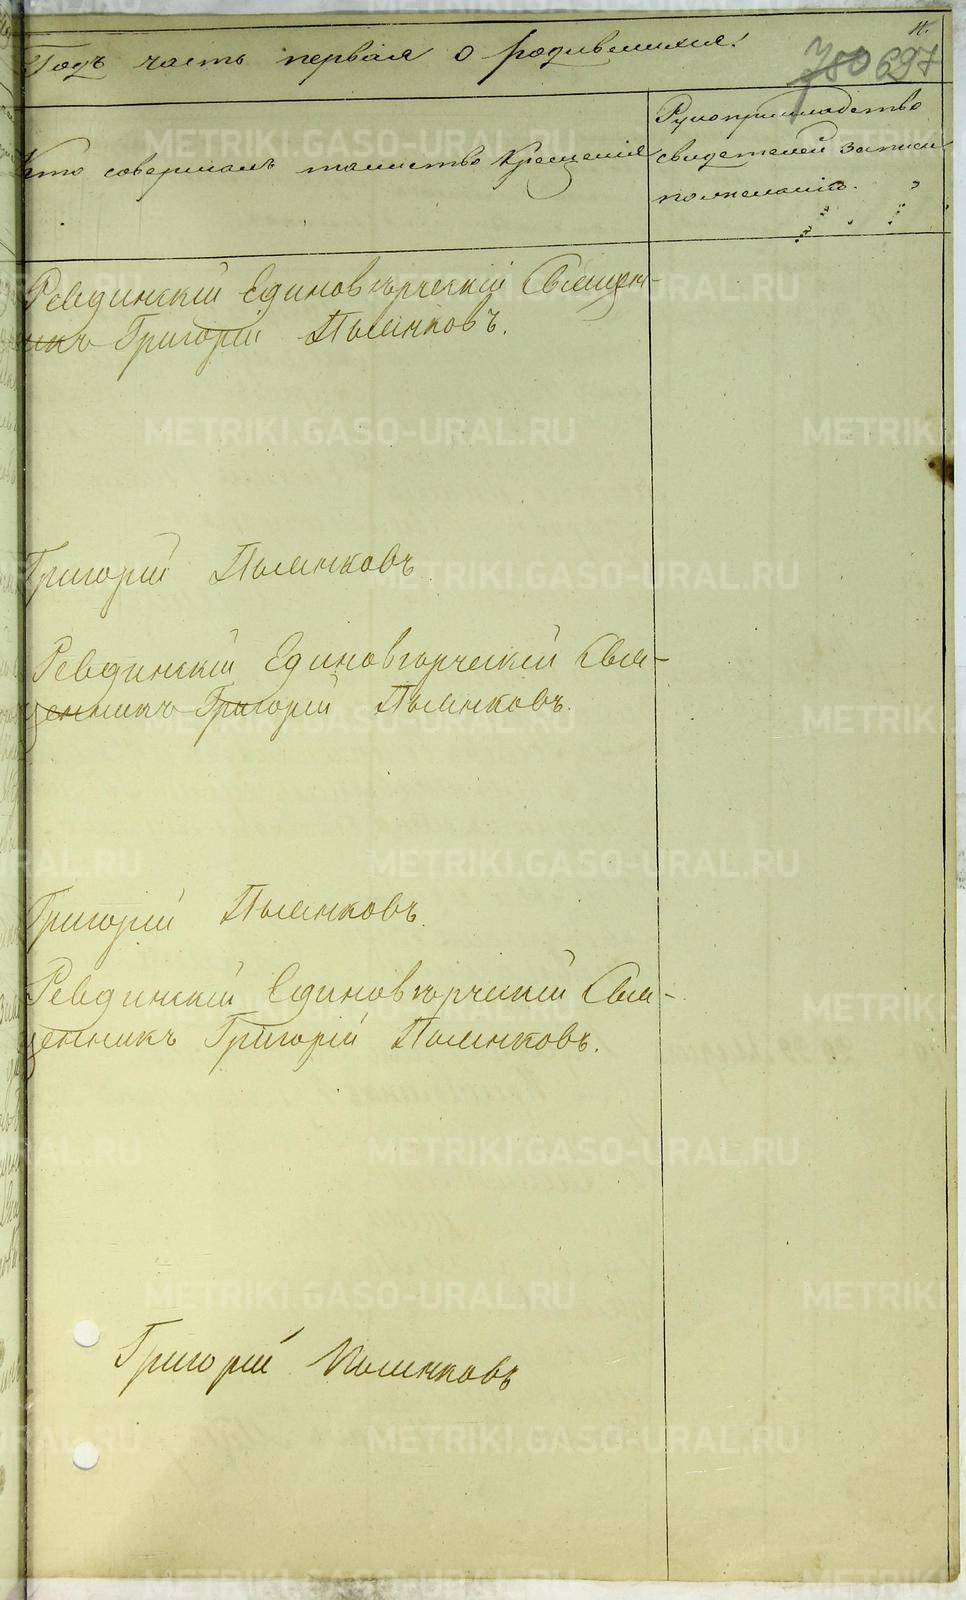 11.
780 697
Годъ часть первая о родившихся.
Кто совершалъ таинство Крещенія
Рукоприкладство
свидетелей записи
по желанію.
Ревдинскій Единоверческій Священ-
никъ Григорій Пьянковъ.
Григорій Пьянковъ
Ревдинскій Единоверческій Свя-
щенникъ Григорій Пьянковъ.
Григорій Пьянковъ.
Ревдинскій Единоверческій Свя-
щенникъ Григорій Пьянковъ.
Григорій Пьянковъ
METRIKI.GASO-URAL.RU